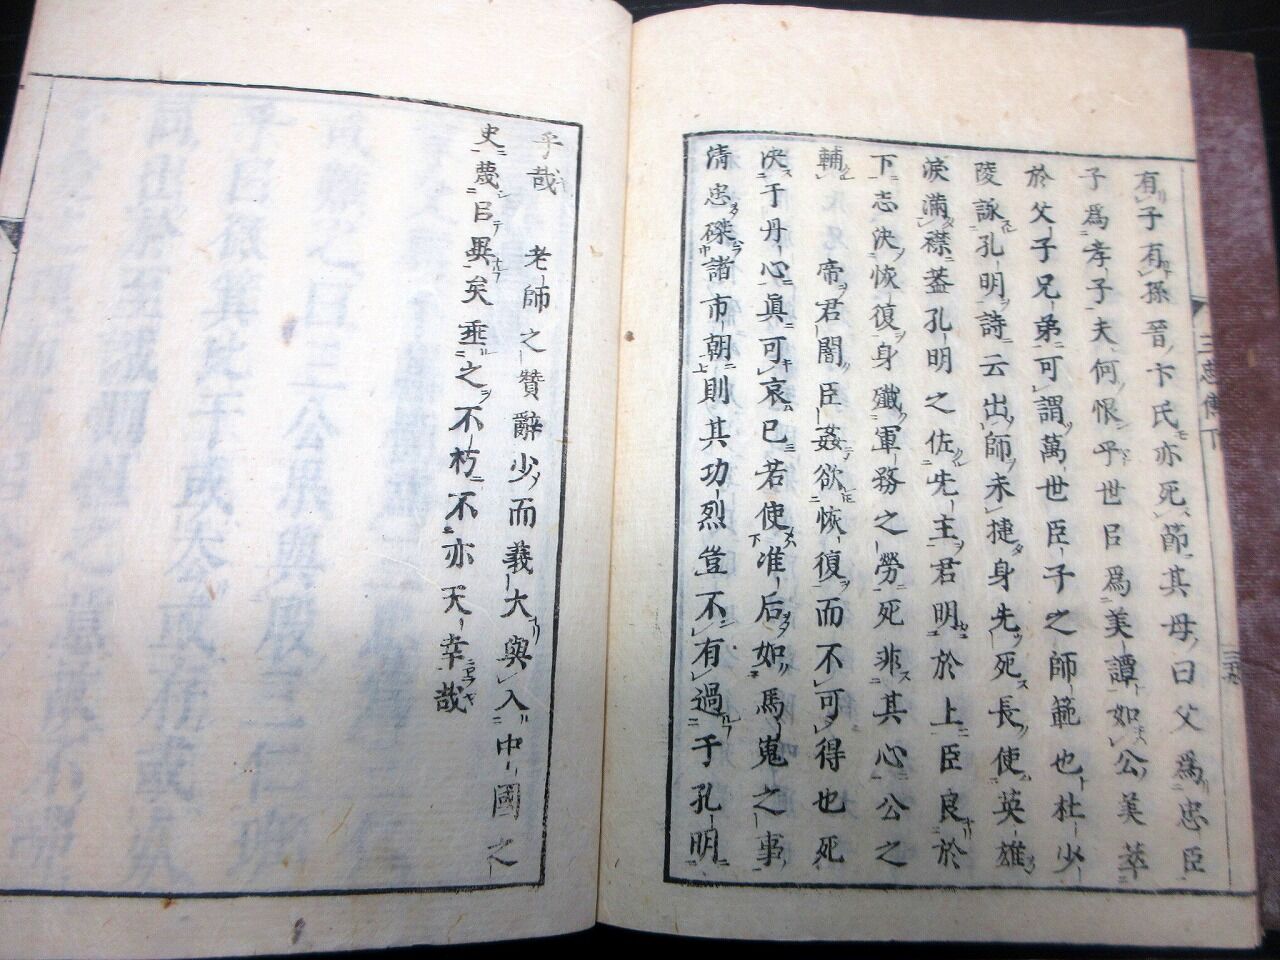 有子有孫晉卞氏亦死節其母曰父爲忠臣
子爲孝子夫何恨乎世㠯爲美譚如公美萃
於父子兄弟可謂萬世臣子之師範也杜少
陵詠孔明詩云出師未捷身先死長使英雄
淚滿襟蓋孔明之佐先主君明於上臣良於
下志決恢復身殲軍務之勞死非其心公之
輔 帝君闇臣姦欲恢復而不可得也死
決于丹心眞可哀已若使准后如馬嵬之事
清忠磔諸市朝則其功烈豈不有過于孔明
三忠傳下
乎哉 老師之贊辭少而義大與入中國之
史蔑㠯異矣垂之不朽不亦天幸哉